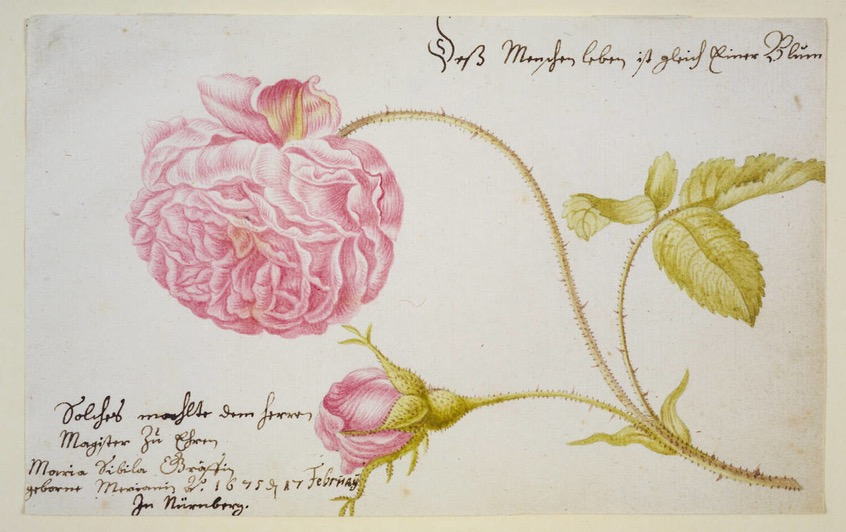 Deß Menschen leben ist gleich Einer Blum
Solches mahlte dem herren
Magister Zu Ehren
Maria Sibila Gräffin
geborne Merianin A: 1675 17 Februarj
In Nürnberg.